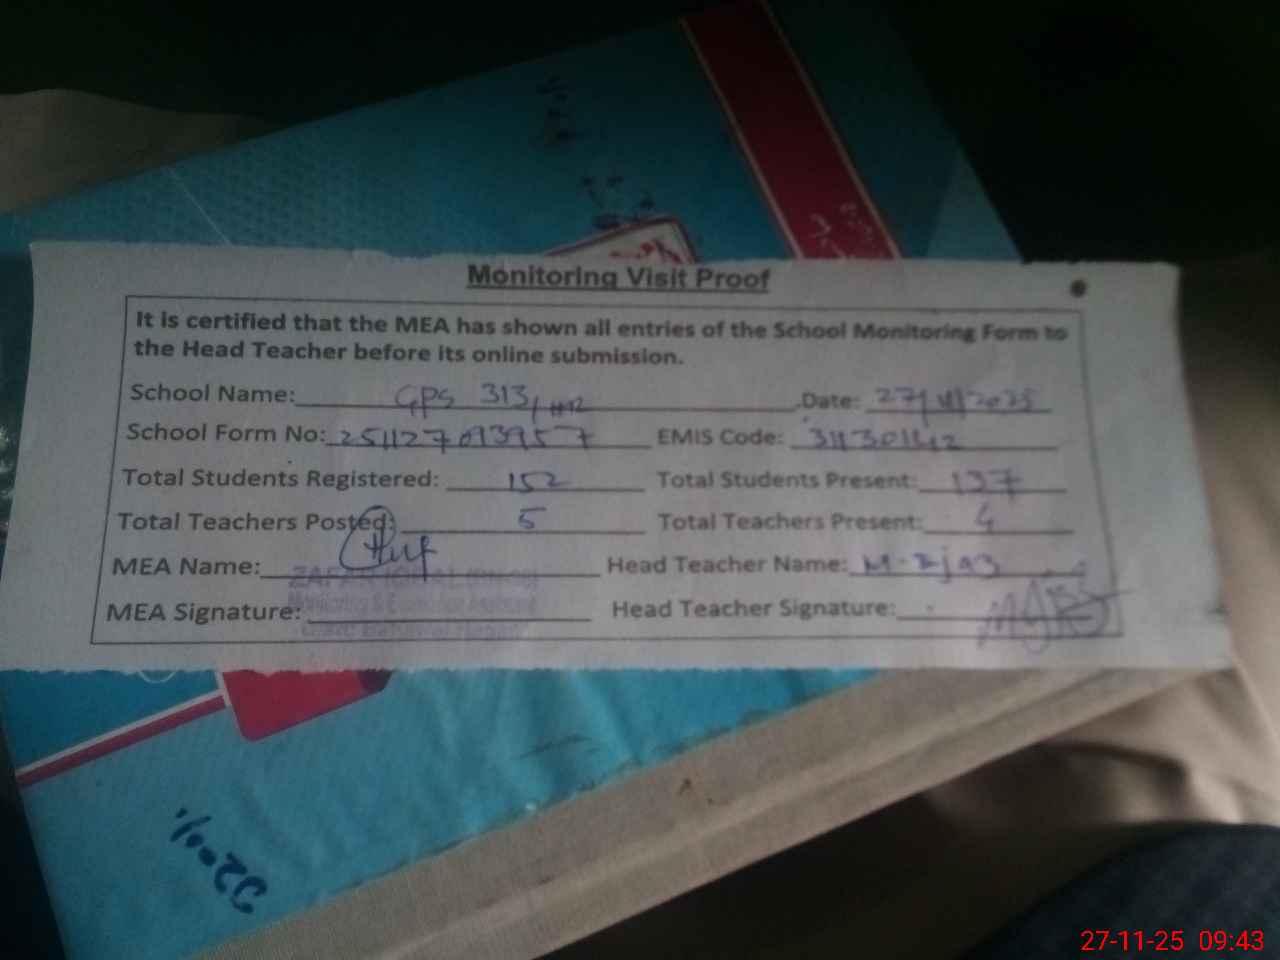 Monitoring Visit Proof
It is certified that the MEA has shown all entries of the School Monitoring Form to
the Head Teacher before its online submission.
School Name: GPS 313/HR Date: 27/11/2025
School Form No: 251127093957 EMIS Code: 31130142
Total Students Registered: 152 Total Students Present: 137
Total Teachers Posted: 5 Total Teachers Present: 4
MEA Name: Head Teacher Name: M. Ejaz
ZAFAR IQBAL
Monitoring & Evaluation Assistant
MEA Signature: Head Teacher Signature:
27-11-25 09:43